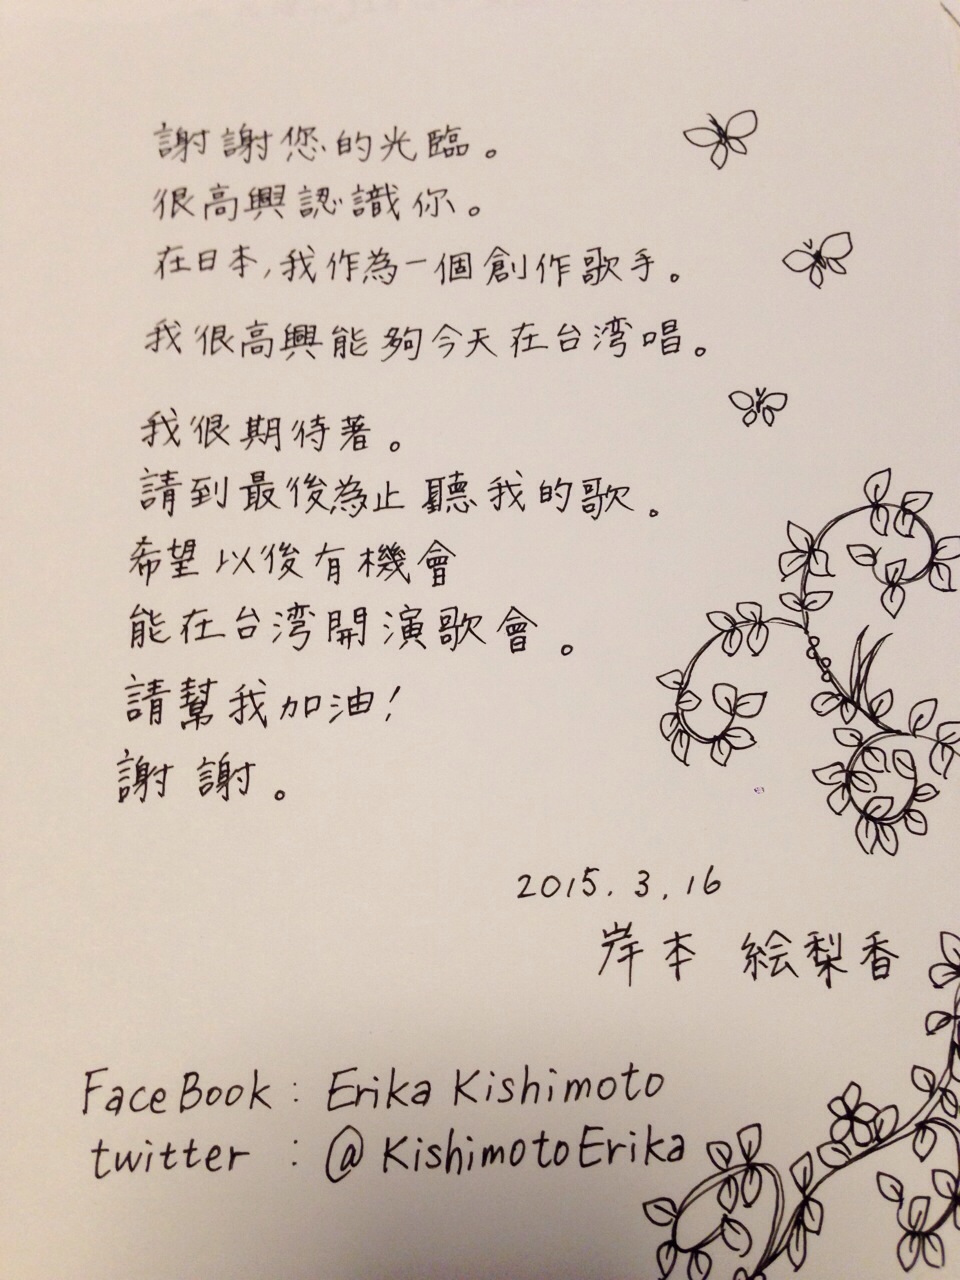 謝謝您的光臨。
很高興認識你。
在日本,我作為一個創作歌手。
我很高興能夠今天在台湾唱。
我很期待著。
請到最後為止聽我的歌。
希望以後有機會
能在台湾開演歌會。
請幫我加油!
謝謝。
2015.3.16
岸本 絵梨香
FaceBook : Erika Kishimoto
twitter : @KishimotoErika